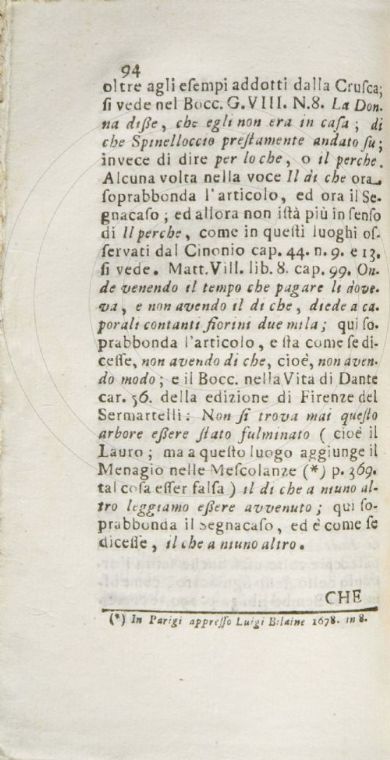 94
oltre agli eſempi addotti dalla Cruſca;
ſi vede nel Bocc. G. VIII. N. 8. La Don-
na diſſe, che egli non era in caſa; di
che Spinelloccio preſtamente andato ſu;
invece di dire per lo che, o il perche.
Alcuna volta nella voce Il di che ora
ſoprabbonda l'articolo, ed ora il Se-
gnacaſo; ed allora non iſtà più in ſenſo
di Il perche, come in queſti luoghi oſ-
ſervati dal Cinonio cap. 44. n. 9. e 13.
ſi vede. Matt. Vill. lib. 8. cap. 99. On-
de venendo il tempo che pagare li dove-
va, e non avendo il di che, diede a ca-
porali contanti fiorini due mila; qui ſo-
prabbonda l'articolo, e ſta come ſe di-
ceſſe, non avendo di che, cioè, non aven-
do modo; e il Bocc. nella Vita di Dante
car. 56. della edizione di Firenze del
Sermartelli: Non ſi trova mai queſto
arbore eſſere ſtato fulminato (cioè il
Lauro; ma a queſto luogo aggiunge il
Menagio nelle Meſcolanze (*) p. 369.
tal coſa eſſer falſa) il di che a niuno al-
tro leggiamo eſſere avvenuto; qui ſo-
prabbonda il Segnacaſo, ed è come ſe
diceſſe, il che a niuno altro.
CHE
(*) In Parigi appreſſo Luigi Bilaine 1678. in 8.